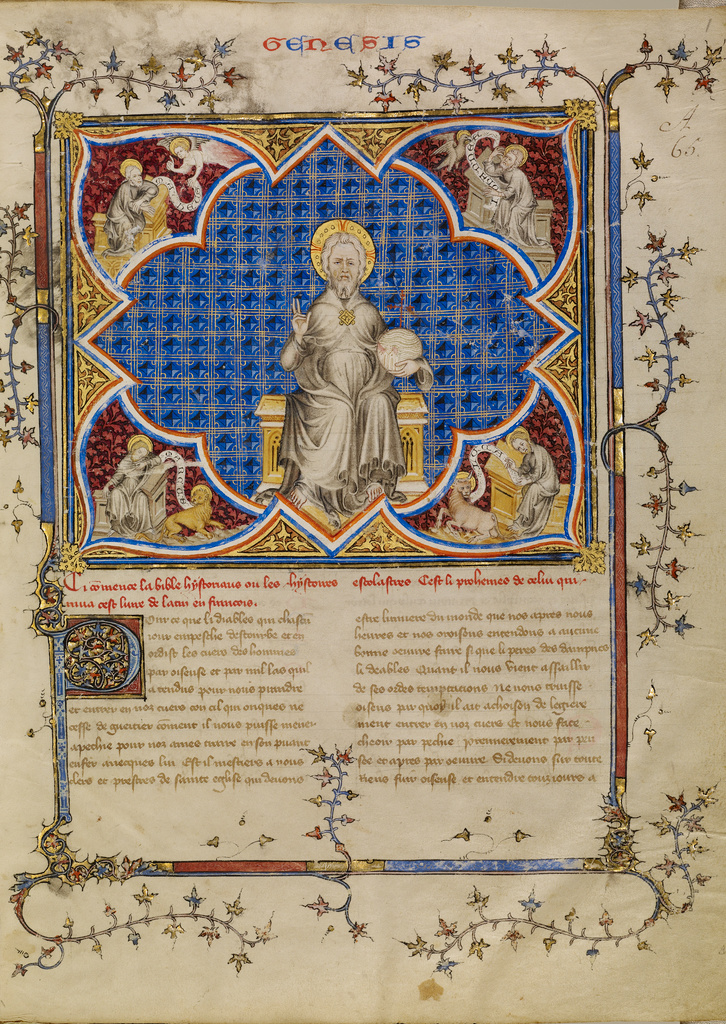 GENESIS
1
A
65.
Ci comence la bible hystoriaus ou les hystoires escolastres. C'est li prohemes de celui qui
mist cest livre de latin en francois.
Pour ce que li diables qui chascun
iour empesche destourbe et en
ordist les cuers des hommes
par oiseuse et par mil las quil
a tendus pour nous prendre
et entrer en noz cuers con cil qui onques ne
cesse de guetier coment il nous puisse mener
a pechie pour noz ames traire en son puant
enfer avecques lui. Est il mestiers a nous
clers et prestres de sainte eglise qui devons
estre lumiere du monde que nos apres nous
heures et nos oroisons entendons a aucune
bonne oeuvre faire si que li
li deables Quant il nous vient assaillir
de ses ordes temptacions Ne nous truisse
oiseus par quoy il ait achoison de legiere
ment entrer en noz cuers Et nous face
cheoir par pechie premierement par pen
see et apres par oeuvre. Si devons sur toute
riens fuir oiseuse et entendre touz iours a